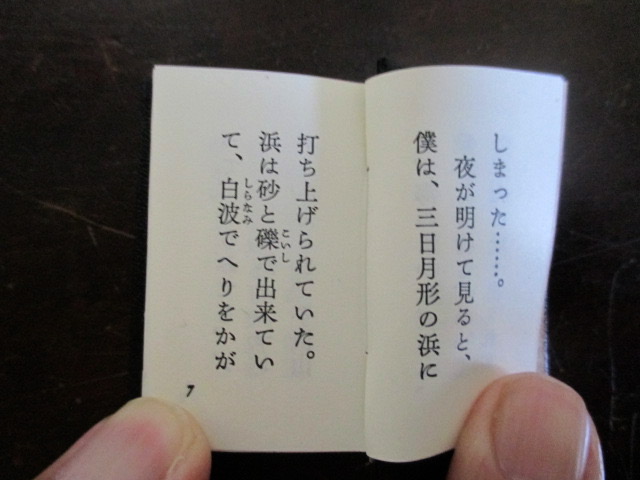 しまった……。
夜が明けて見ると、
僕は、三日月形の浜に
打ち上げられていた。
浜は砂と礫で出来てい
て、白波でへりをかが
こいし
しらなみ
7